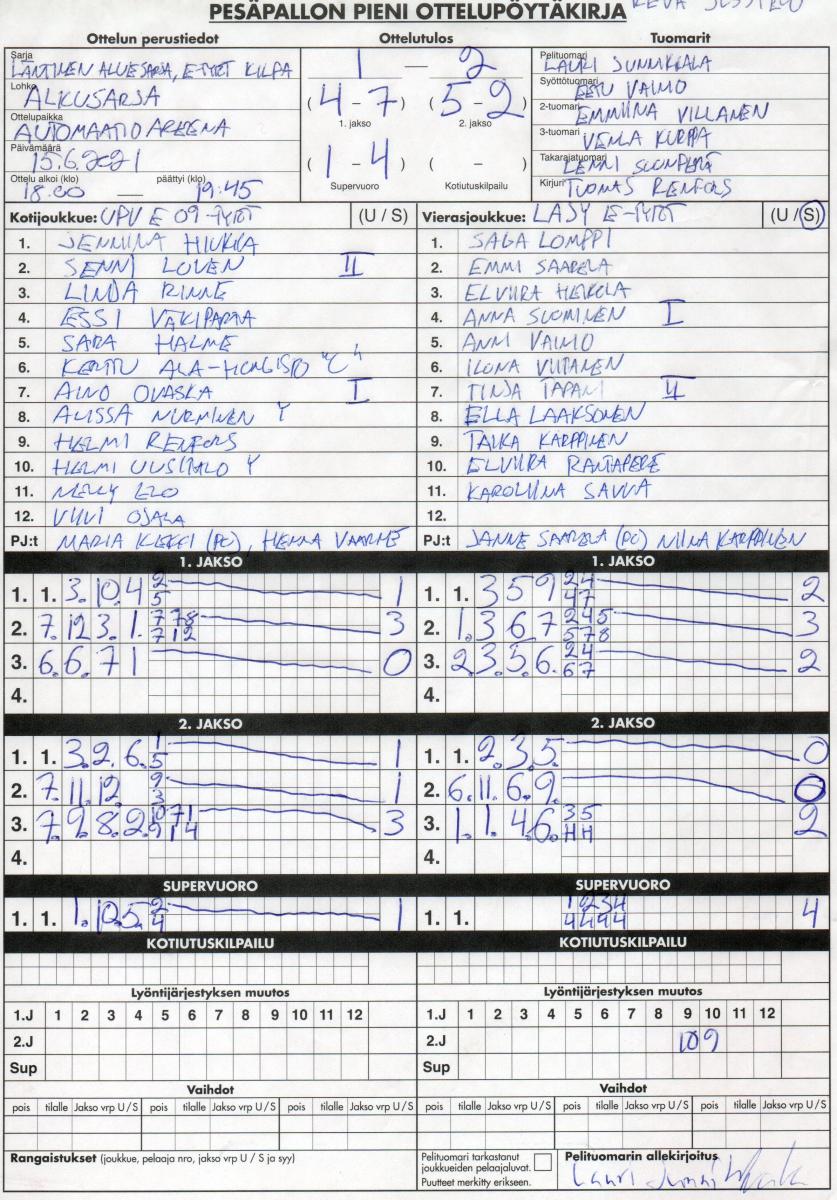 PESÄPALLON PIENI OTTELUPÖYTÄKIRJA
Ottelun perustiedot
Sarja
LÄNTINEN ALUESARJA, E-TYTÖT KILPA
Lohko
ALKUSARJA
Ottelupaikka
AUTOMAATIO AREENA
Päivämäärä
15.6.2021
Ottelu alkoi (klo) päättyi (klo)
18.00 — 19:45
Ottelutulos
1 — 2
(4 - 7) (5 - 2)
1. jakso 2. jakso
(1 - 4) ( - )
Supervuoro Kotiutuskilpailu
Tuomarit
Pelituomari
LAURI SUNNIKKALA
Syöttötuomari
EETU VAIMO
2-tuomari
EMMIINA VILLANEN
3-tuomari
VENLA KURPPA
Takarajatuomari
LENNI SUONPERÄ
Kirjuri
TUOMAS RENFORS
Kotijoukkue: UPV E 09-TYTÖT (U / S)
1. JENNINA HIUKKA
2. SENNI LOVEN II
3. LINDA RINNE
4. ESSI VÄKIPARTA
5. SARA HALME
6. KERTTU ALA-HONGISTO "C"
7. AINO OVASKA I
8. ALISSA NURMINEN Y
9. HELMI RENFORS
10. HELMI UUSITALO Y
11. NELLY ELO
12. VIIVI OJALA
PJ:t MARIA (PJ), HENNA
Vierasjoukkue: LASY E-TYTÖT (U / S)
1. SAGA LOMPPI
2. EMMI SAARELA
3. ELVIIRA HEIKOLA
4. ANNA SUOMINEN I
5. ANNI VAIMO
6. ILONA VIITANEN
7. TINJA TAPANI II
8. ELLA LAAKSONEN
9. TAIKA KARPPINEN
10. ELVIIRA RANTAPERE
11. KAROLIINA SAVVA
12.
PJ:t JANNE SAARELA (PJ) NIINA KARPPINEN
1. JAKSO
1. 1. 3. 10. 4 2 1
5
2. 7. 12 3. 1. 7 7 8 3
7 1 2
3. 6. 6. 7 1 0
4.
1. JAKSO
1. 1. 3 5 9 2 4 2
4 7
2. 1. 3 6 7 2 4 5 3
5 7 8
3. 2. 3. 5. 6. 2 4 2
6 7
4.
2. JAKSO
1. 1. 3. 2. 6. 1 1
5
2. 7. 11. 12. 9 1
3
3. 7. 9. 8. 2. 10 7 1 3
9 1 4
4.
2. JAKSO
1. 1. 2. 3. 5. 0
2. 6. 11. 6. 9. 0
3. 1. 1. 4. 6. 3 5 2
H H
4.
SUPERVUORO
1. 1. 1. 10. 5. 2 1
4
SUPERVUORO
1. 1. 1 2 3 4 4
4 4 9 4
KOTIUTUSKILPAILU
KOTIUTUSKILPAILU
Lyöntijärjestyksen muutos
1.J 1 2 3 4 5 6 7 8 9 10 11 12
2.J
Sup
Lyöntijärjestyksen muutos
1.J 1 2 3 4 5 6 7 8 9 10 11 12
2.J 10 9
Sup
Vaihdot
pois tilalle Jakso vrp U / S pois tilalle Jakso vrp U / S pois tilalle Jakso vrp U / S
Vaihdot
pois tilalle Jakso vrp U / S pois tilalle Jakso vrp U / S pois tilalle Jakso vrp U / S
Rangaistukset (joukkue, pelaaja nro, jakso vrp U / S ja syy)
Pelituomari tarkastanut
joukkueiden pelaajaluvat.
Puutteet merkitty erikseen.
Pelituomarin allekirjoitus